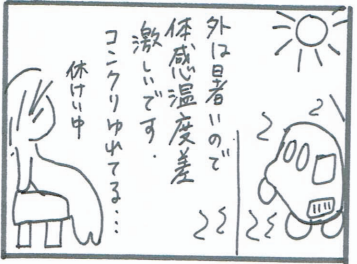 外は暑いので
体感温度差
激しいです.
コンクリゆれてる...
休けい中